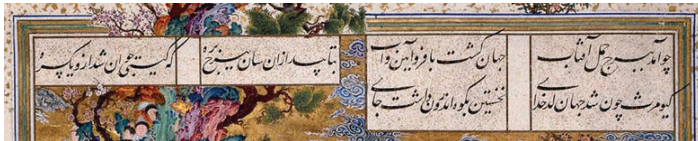 چو آمد ببرج حمل آفتاب جهان گشت با فر و آیین و آب بتابید از آن سان ز برج بره که گیتی جوان شد ازو یکسره
کیومرث چون شد جهان کدخدای نخستین بکوه اندرون داشت جای